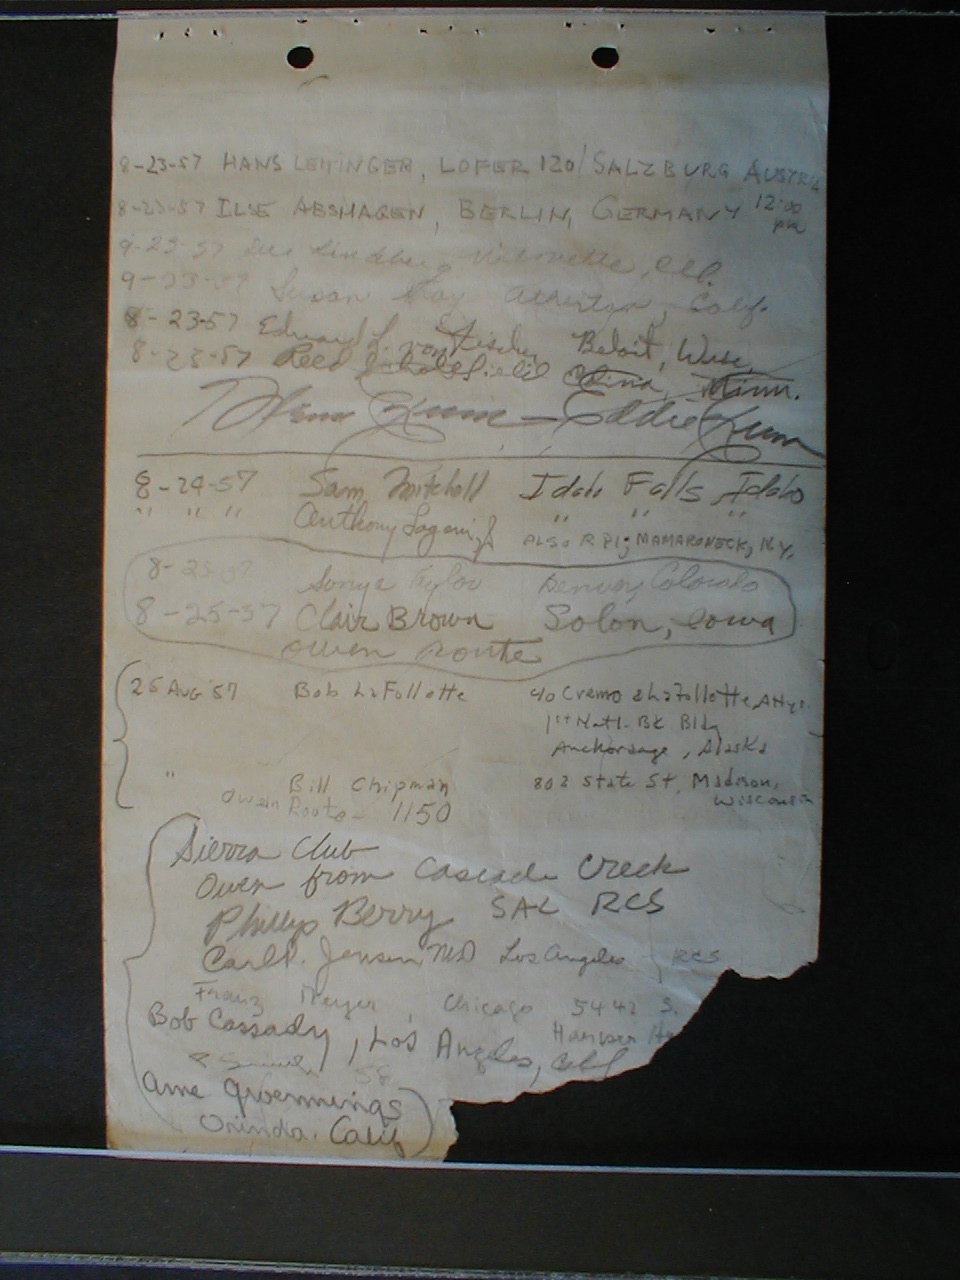 8-23-57 HANS LEITINGER, LOFER 120/SALZBURG AUSTRIA
8-23-57 ILSE ABSHAGEN, BERLIN, GERMANY 12:00 pm
9-23-57 Sue Lindberg
9-23-57 Susan Atherton, Calif.
8-23-57 Edward L. von Fischer Beloit, Wisc.
8-23-57 Reed Minn.
8-24-57 Sam Mitchell Idaho Falls Idaho
" " " Anthony " " " ALSO R.P.I; MAMARONECK, N.Y.
8-25-57 Sonya Taylor Denver, Colorado
8-25-57 Clair Brown Solon, Iowa
Owen Route
25 Aug '57 Bob LaFollette c/o Cremo & LaFollette, Attys.
1st Natl. Bk Bldg
Anchorage, Alaska
" Bill Chipman 802 State St, Madison,
Wisconsin
Owen Route - 1150
Sierra Club
Owen from Cascade Creek
Phillip Berry SAC RCS
Carl P. Jensen MD Los Angeles RCS
Franz Meyer, Chicago 5442 S.
Bob Cassady, Los Angeles, Calif
58
Orinda, Calif